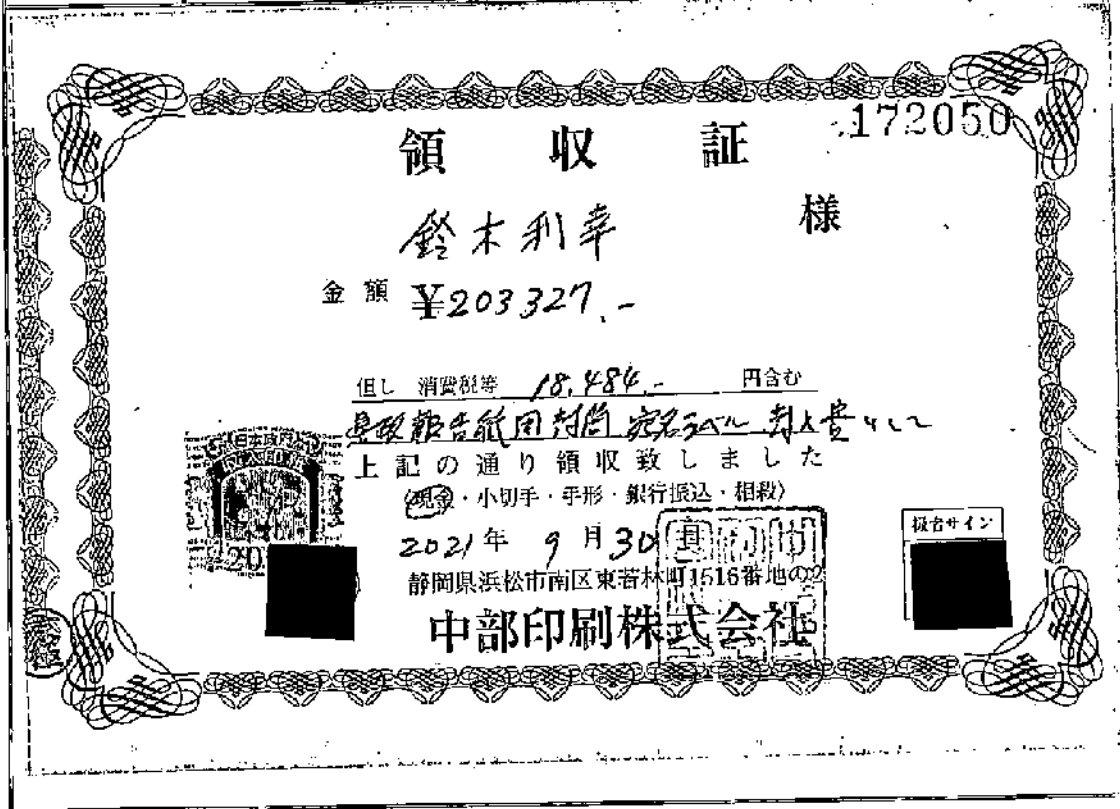 172050
領収証
鈴木利幸 様
金額 ¥203327.-
但し 消費税等 18,484.- 円含む
県政報告紙用封筒 宛名ラベル 封入費として
上記の通り領収致しました
(現金・小切手・手形・銀行振込・相殺)
日本政府
収入印紙
20
2021年 9月30日
扱者サイン
静岡県浜松市南区東若林町1516番地の2
中部印刷株式会社